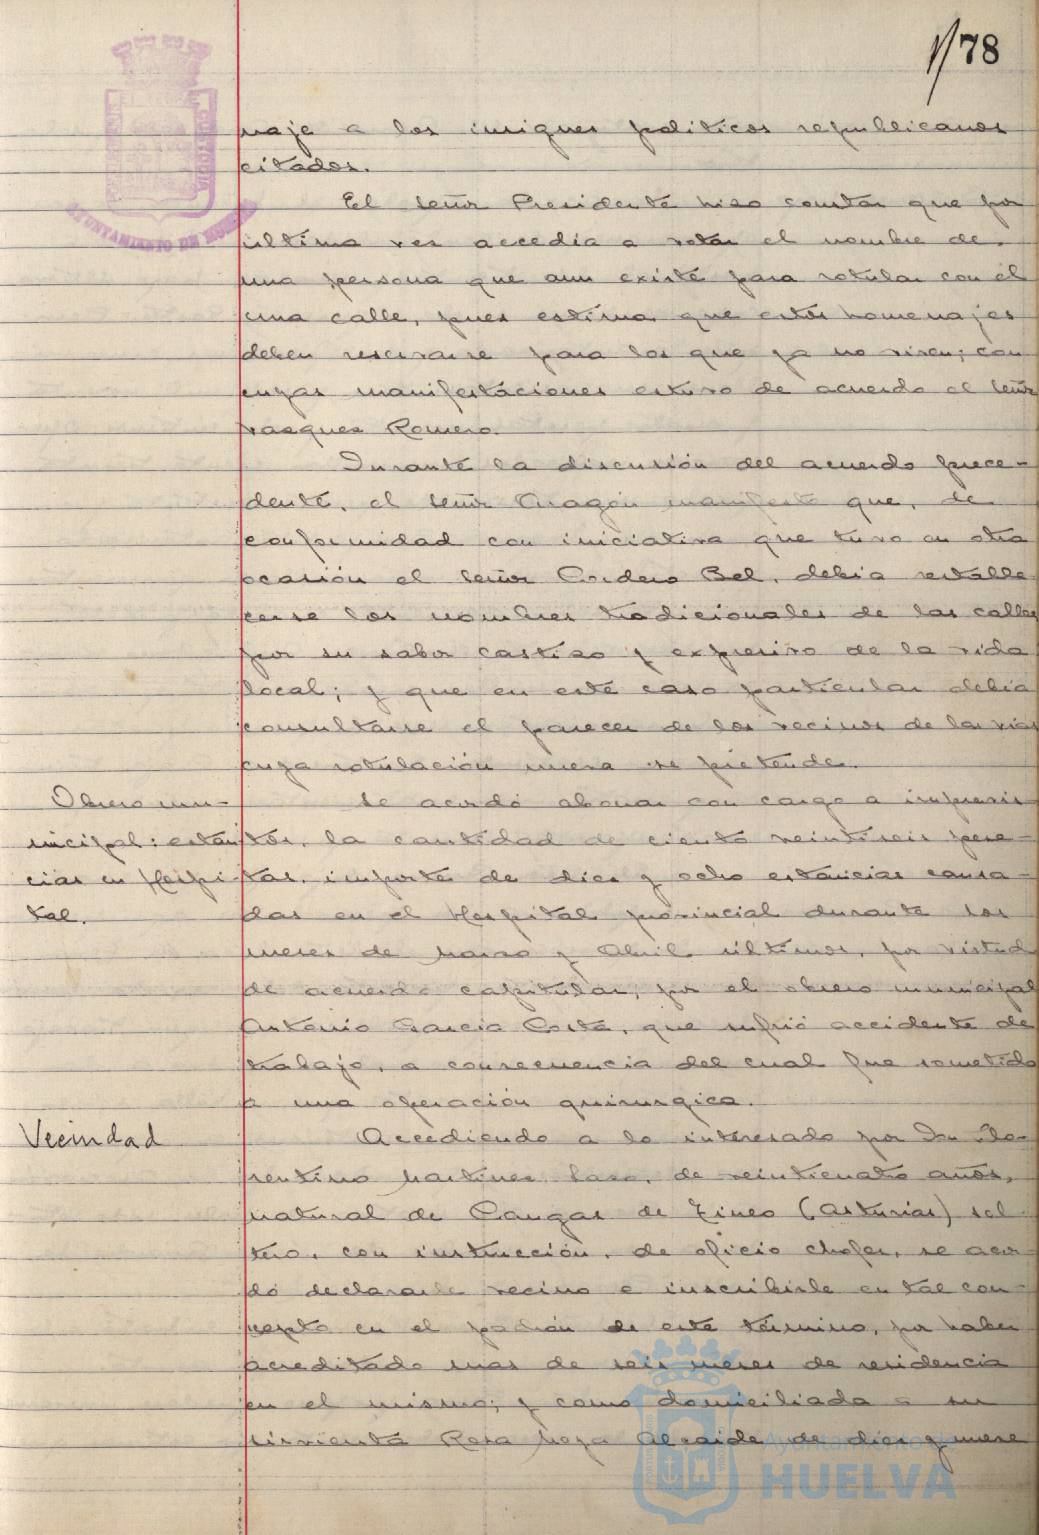 78
naje a los insignes políticos republicanos
citados.
El señor Presidente hizo constar que por
última vez accedía a votar el nombre de
una persona que aun existe para rotular con él
una calle, pues estima que estos homenajes
deben reservarse para los que ya no viven; con
cuyas manifestaciones estuvo de acuerdo el señor
Vazquez Romero.
Durante la discusión del acuerdo prece-
dente, el señor Aragón manifestó que, de
conformidad con iniciativa que tuvo en otra
ocasión el señor Cordero Bel, debía restable
cerse los nombres tradicionales de las calles
por su sabor castizo y expresivo de la vida
local; y que en este caso particular debía
consultarse el parecer de los vecinos de las vías
cuya rotulación nueva se pretende.
Obrero mu-
nicipal: estan
cias en Hospi
tal.
Se acordó abonar con cargo a imprevis
tos, la cantidad de ciento veintiseis pese-
tas, importe de diez y ocho estancias causa-
das en el Hospital provincial durante los
meses de Marzo y Abril últimos, por virtud
de acuerdo capitular, por el obrero municipal
Antonio García Corte, que sufrió accidente de
trabajo, a consecuencia del cual fue sometido
a una operación quirurgica.
Vecindad
Accediendo a lo interesado por Don
Martinez de veinticuatro años,
natural de Cangas de Tineo (Asturias) sol-
tero, con instrucción, de oficio chofer, se acor-
dó declararle vecino e inscribirle en tal con-
cepto en el padrón de este término, por haber
acreditado mas de seis meses de residencia
en el mismo; y como domiciliada a su
sirvienta Rosa Alcaide de diez y nueve
AYUNTAMIENTO DE HUELVA
Ayuntamiento de
HUELVA